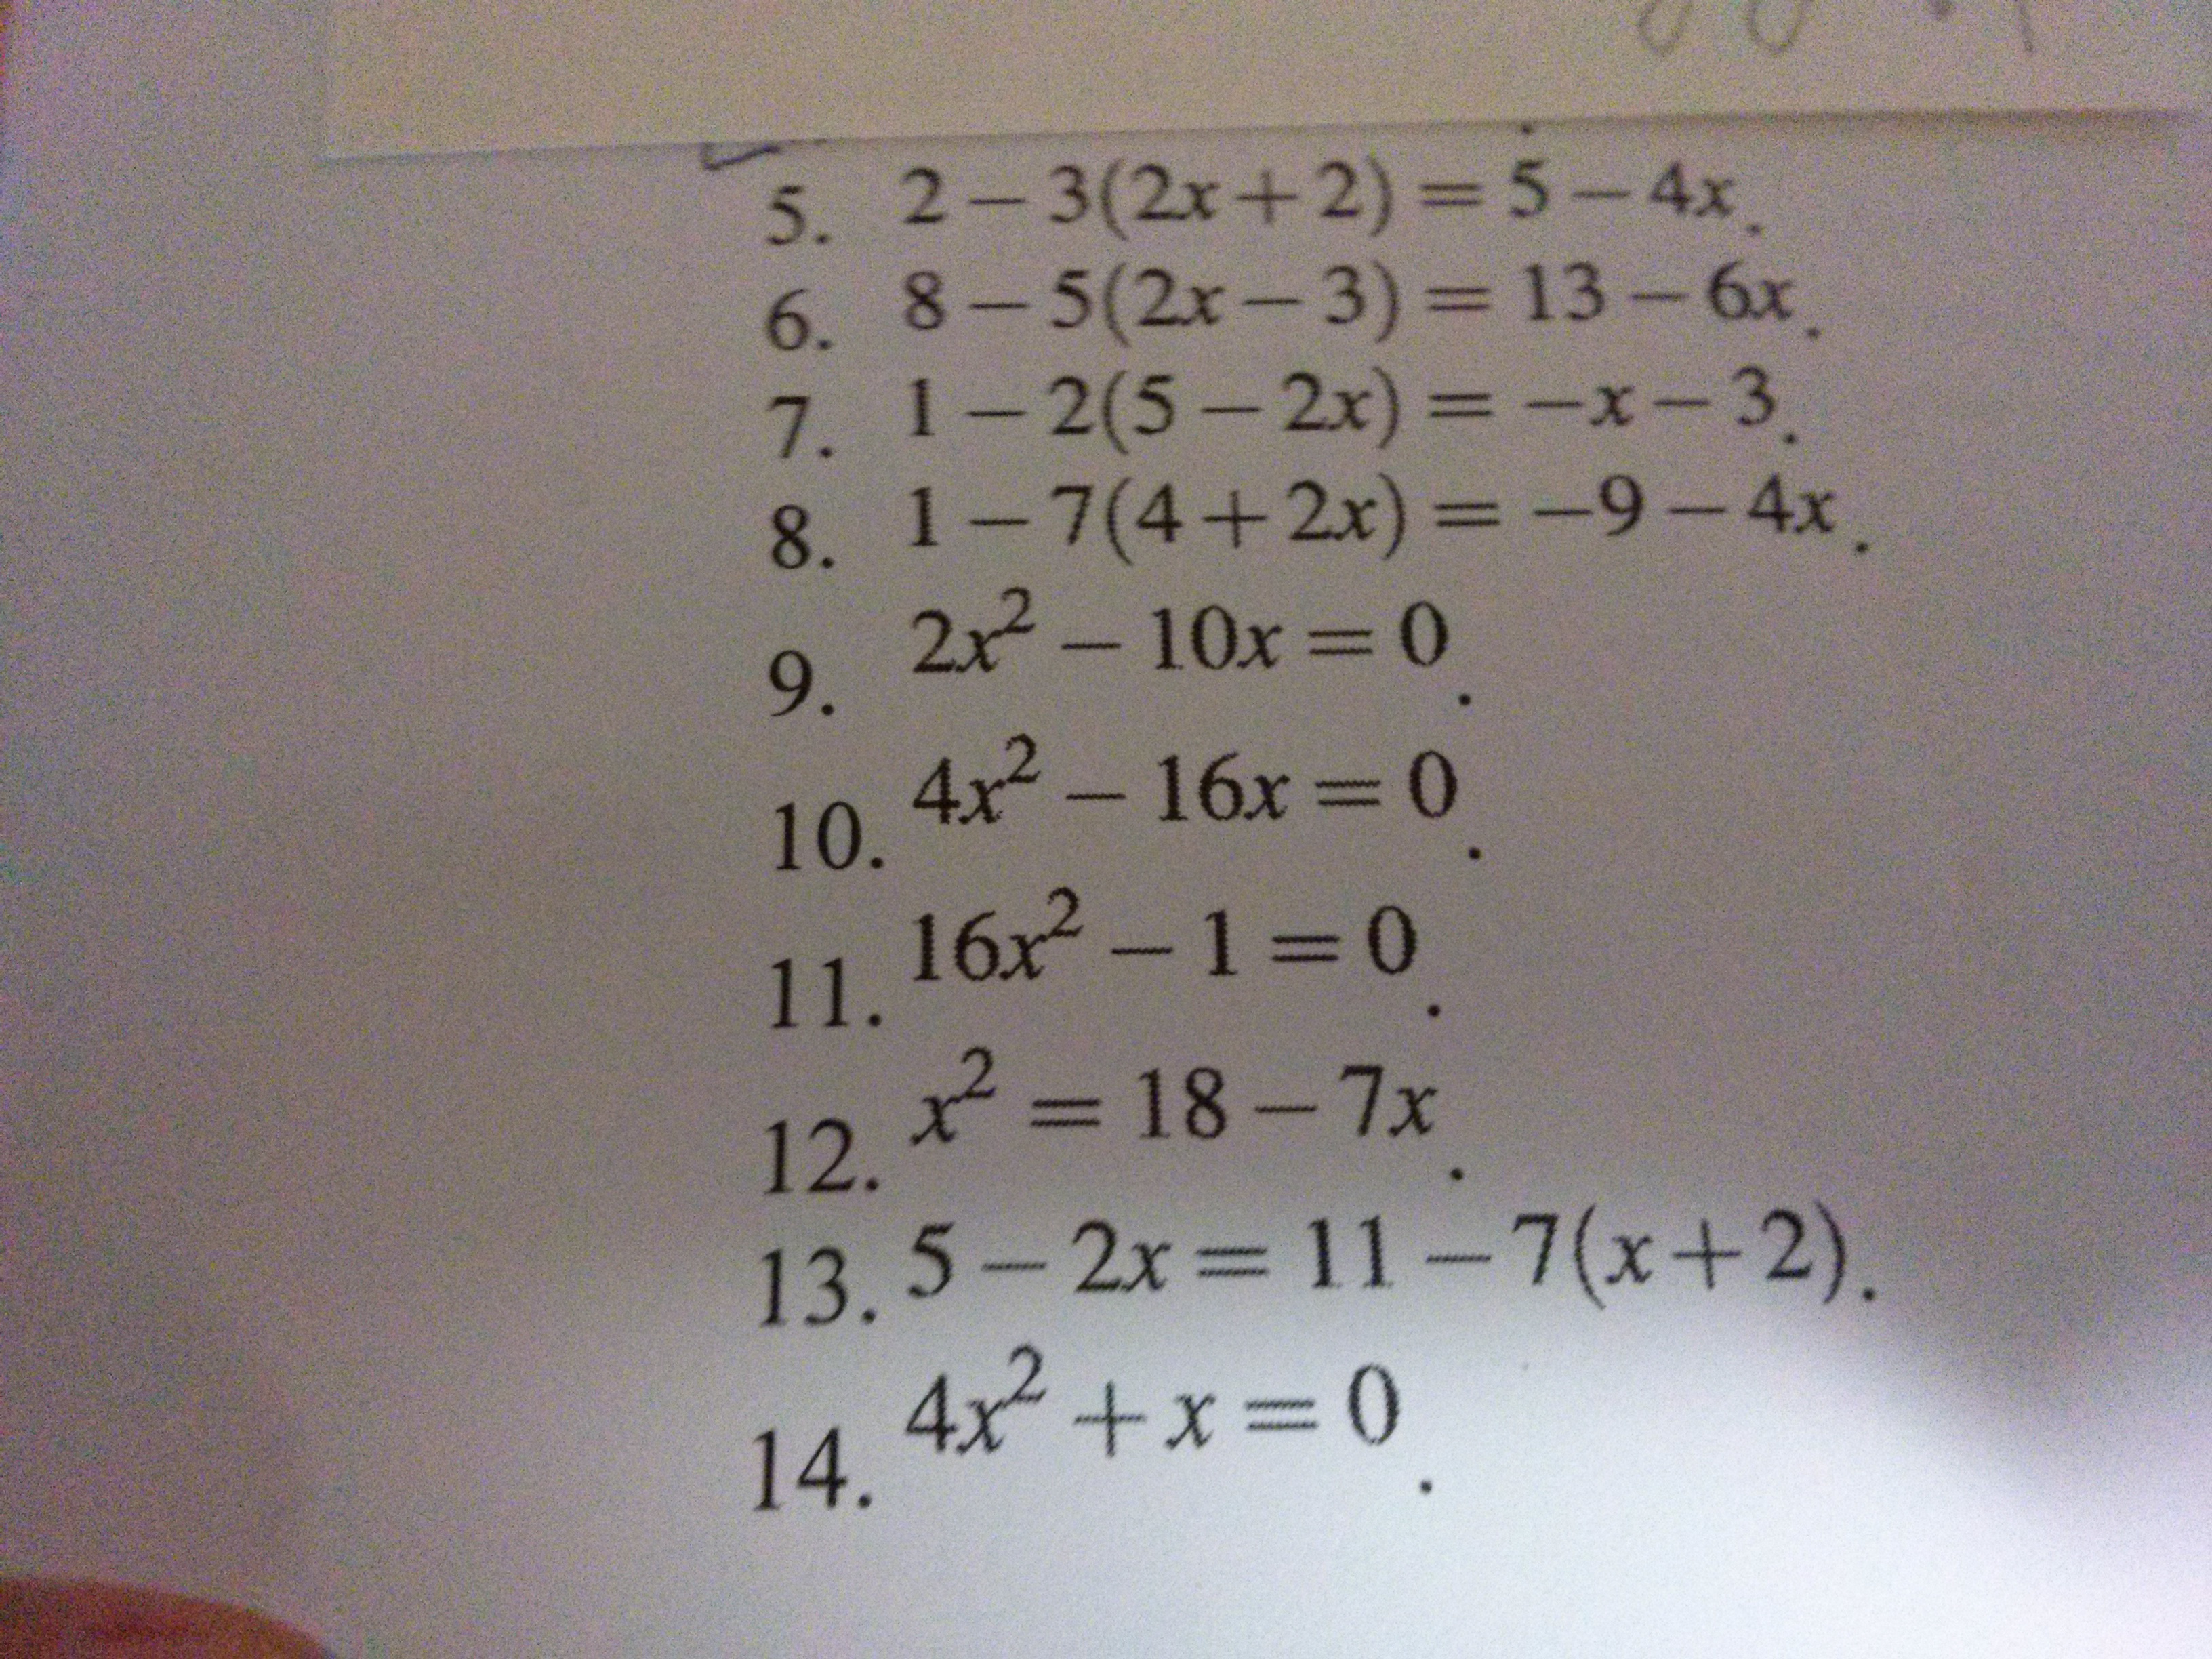 5. 2 – 3(2x + 2) = 5 – 4x.
6. 8 – 5(2x – 3) = 13 – 6x.
7. 1 – 2(5 – 2x) = –x – 3.
8. 1 – 7(4 + 2x) = –9 – 4x.
9. 2x² – 10x = 0.
10. 4x² – 16x = 0.
11. 16x² – 1 = 0.
12. x² = 18 – 7x.
13. 5 – 2x = 11 – 7(x + 2).
14. 4x² + x = 0.